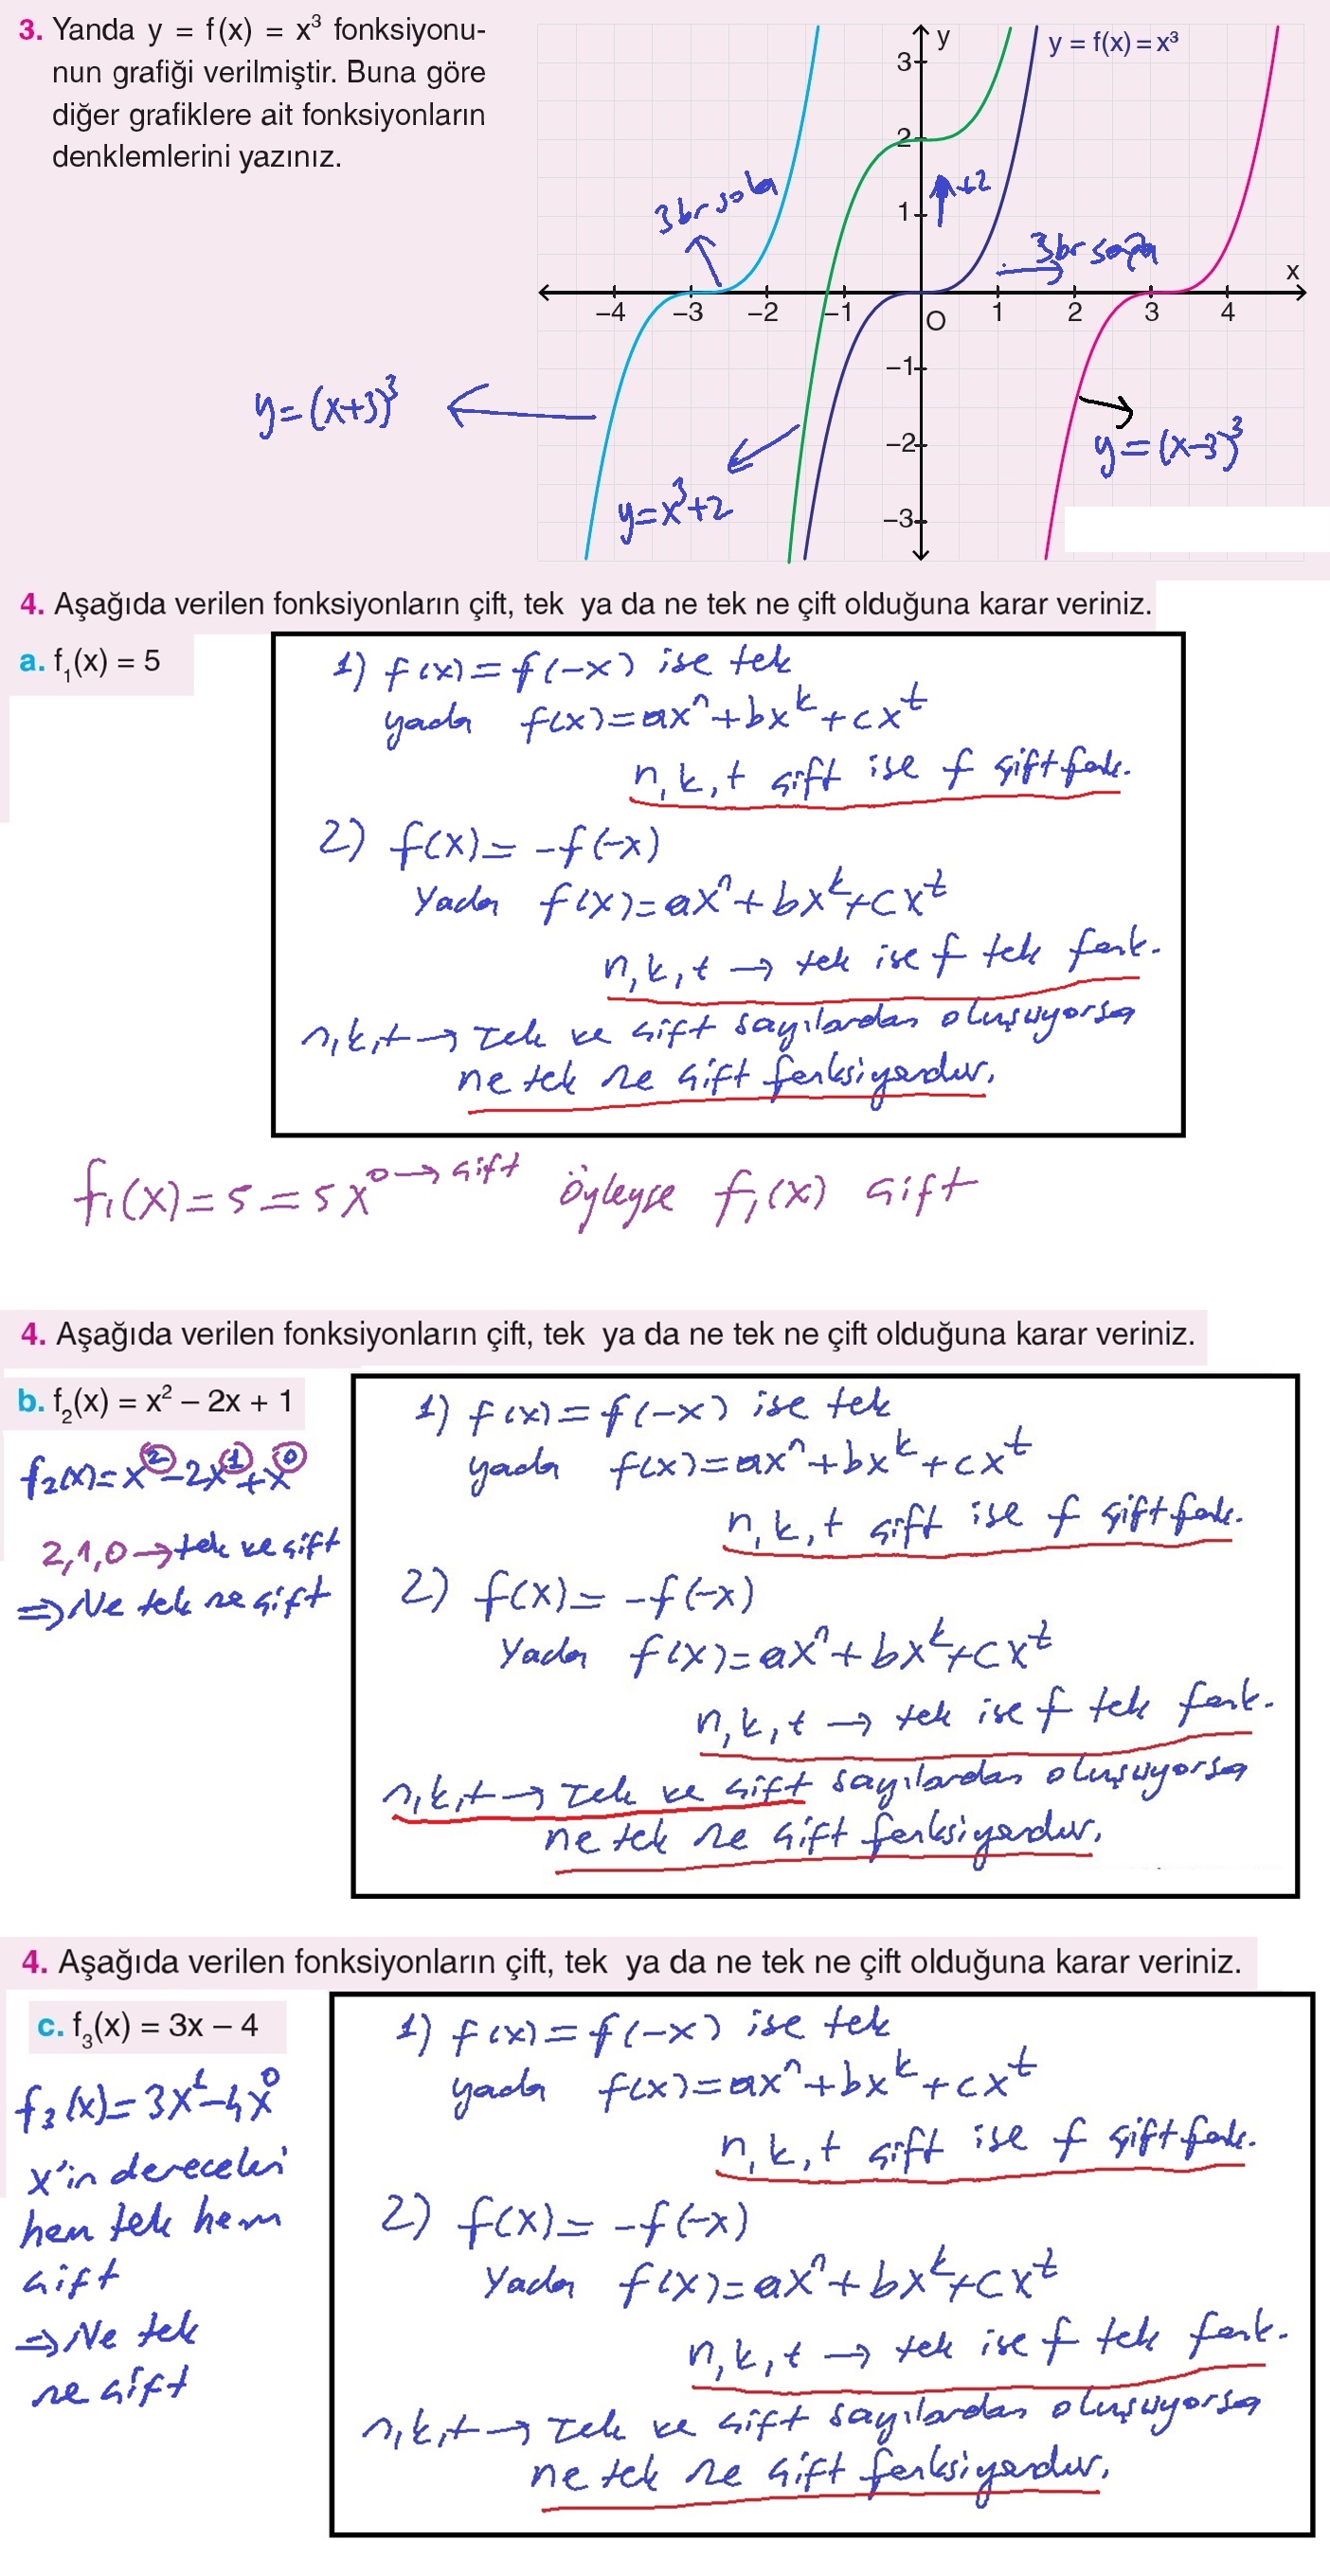 3. Yanda y = f(x) = x³ fonksiyonu-
nun grafiği verilmiştir. Buna göre
diğer grafiklere ait fonksiyonların
denklemlerini yazınız.
y
y = f(x) = x³
3
2
1
-1
-2
-3
x
-4 -3 -2 -1 O 1 2 3 4
3br sola
+2
3br sağa
y=(x+3)³
y=x³+2
y=(x-3)³
4. Aşağıda verilen fonksiyonların çift, tek ya da ne tek ne çift olduğuna karar veriniz.
a. f₁(x) = 5
1) f(x)=f(-x) ise tek
yada f(x)=axⁿ+bxᵏ+cxᵗ
n,k,t çift ise f çift fonk.
2) f(x)= -f(-x)
Yada f(x)=axⁿ+bxᵏ+cxᵗ
n,k,t → tek ise f tek fonk.
n,k,t → Tek ve çift sayılardan oluşuyorsa
ne tek ne çift fonksiyondur.
f₁(x)=5=5x⁰→çift öyleyse f₁(x) çift
4. Aşağıda verilen fonksiyonların çift, tek ya da ne tek ne çift olduğuna karar veriniz.
b. f₂(x) = x² – 2x + 1
f₂(x)=x²-2x¹+x⁰
2,1,0→tek ve çift
⇒Ne tek ne çift
1) f(x)=f(-x) ise tek
yada f(x)=axⁿ+bxᵏ+cxᵗ
n,k,t çift ise f çift fonk.
2) f(x)= -f(-x)
Yada f(x)=axⁿ+bxᵏ+cxᵗ
n,k,t → tek ise f tek fonk.
n,k,t → Tek ve çift sayılardan oluşuyorsa
ne tek ne çift fonksiyondur.
4. Aşağıda verilen fonksiyonların çift, tek ya da ne tek ne çift olduğuna karar veriniz.
c. f₃(x) = 3x – 4
f₃(x)=3x¹-4x⁰
x'in dereceleri
hem tek hem
çift
⇒Ne tek
ne çift
1) f(x)=f(-x) ise tek
yada f(x)=axⁿ+bxᵏ+cxᵗ
n,k,t çift ise f çift fonk.
2) f(x)= -f(-x)
Yada f(x)=axⁿ+bxᵏ+cxᵗ
n,k,t → tek ise f tek fonk.
n,k,t → Tek ve çift sayılardan oluşuyorsa
ne tek ne çift fonksiyondur.